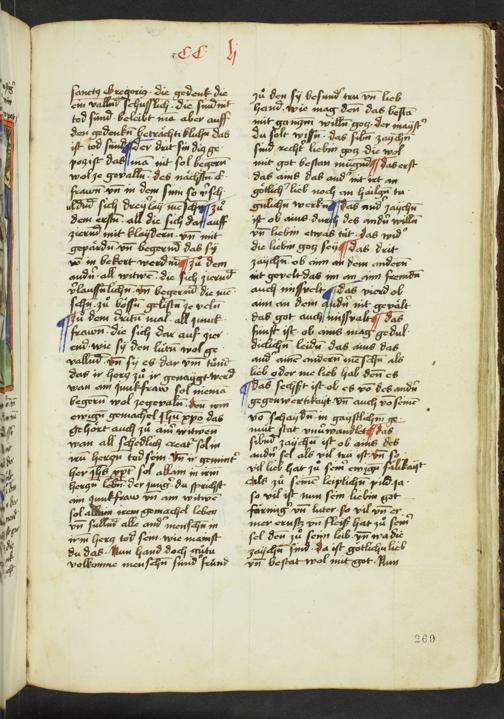 CC lj
sanctus Gregoriꝰ. die gedenk die
ein vallend schüsslich. die sind nit
tod sünd. beleibt mā aber auff
den gedenkn̄ betrachtikliche das
ist tod sünd der drit sin dis ge
pocz ist das mā nit sol begern
wol ze geuallen. des nächsten
frawn vn̄ in dem sun so
dreÿ laÿ mēschn̄ zů
dem erstn̄. all die sich dar auff
zierend mit klaÿdern. vn̄ mit
gepärdn̄ vn̄ begerend das sÿ
in bekert werdn̄ zů dem
andn̄. all witwē. die sich zierend
vn̄ begerend die
schn̄ zů
zů dem dritn̄ mal. all junck
frawn. die sich dar auf
end wie sÿ den lütn̄ wol ge
vallnd. vn̄ sÿ es dar vm̄ tůnd
das ir hercz zů ir genaÿgt werd
wan ain junkfraw sol niemā
begern wol ze geualn̄. den irem
ewign̄ gemachel jhū xp̄o das
gehört auch zů ainr witwen
wan all schedlich creat sol in
iru herczn̄ tod sein vn̄ ir gemint
her jhs xp̄t sol allain in irm
herczn̄ lebn̄. der junger du sprichst
ain junkfraw vn̄ am witwe
sol allain irem gemachel leben
vn̄ sülln̄ alle andr̄ menschn̄ in
irm hercz tod sein. wie mainst
du das. Nun hand doch gůtu
volkomne menschn̄ sund fründ
zů den sÿ besundr̄ tru vn̄ lieb
hand. wie mag den das bestā
mit ganczm̄ willn̄ gocz. der maister
du solt wissn̄. das sibn̄ zaÿchn̄
sind recht liebin gocz die wol
mit got bestan mugend das erst
das ains das andr̄ nit irt an
götlichr̄ lieb noch an hailgn̄ tu
gentlichn̄ werkn̄ das andr̄ zaÿchn̄
ist ob ains durch des andr̄n willn̄
vn̄ liebin etwas tůt. das wid
die liebin gocz seÿ das drit
zaÿchn̄ ob ainm an dem andern
nit geuelt das im an aim fremdn̄
auch missuelt das vierd ob
aim an dem andr̄ nit geuält
das got auch missualt das
fünft ist ob ains mag gedul
diclichn̄ leidn̄ das ains das
andr̄ aine andern mēschn̄ als
lieb oder me lieb hab den es
das sechst ist ob es vō des andr̄
gegenwertikaÿt vn̄ auch vō seinē
vō schaÿdn̄ in gaÿstlichm̄ ge
müt stat vnuerwandlet das
sibend zaÿchn̄ ist ob ains des
andn̄ sel als vil tru ist vn̄ so
vil lieb hat zů seinr ewign̄ sälikaÿt
als zů seinē leiplichn̄
so vil ist nun sein liebin got
förmig vn̄ luter so vil vn̄ er
mer ernst vn̄ fleiss hat zů seinr
sel den zů seinē leib. vn̄ wa die
zaÿchn̄ sind. da ist götlichu lieb
vn̄ bestat wol mit got. Nun
260